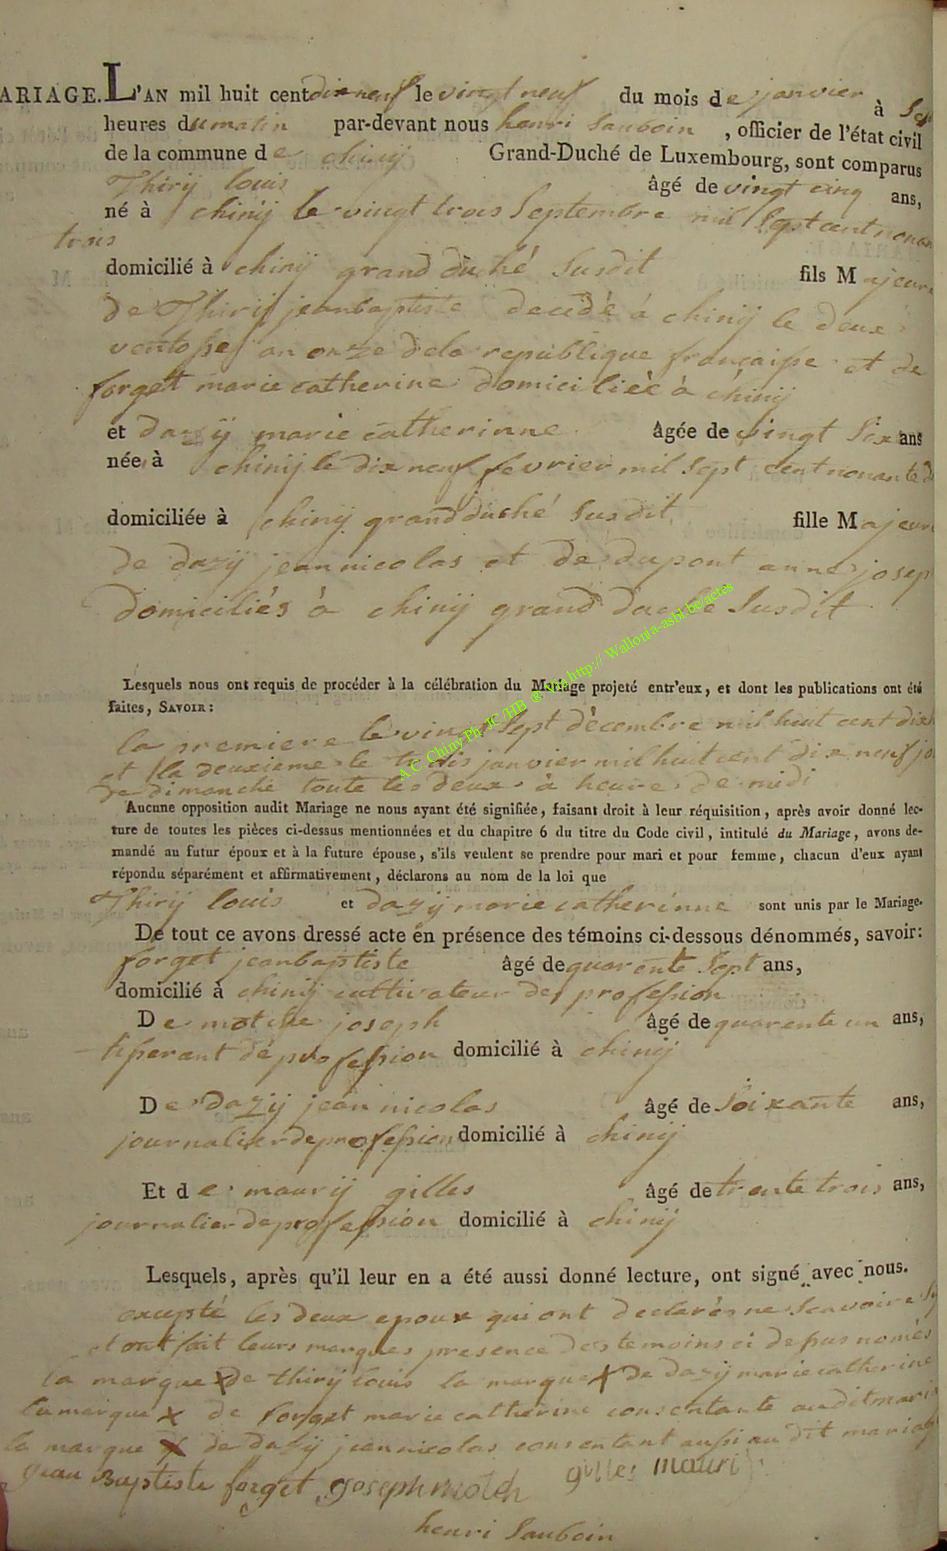 ARIAGE. L'AN mil huit cent dix neuf le vingt neuf du mois de janvier à
heures du matin par-devant nous henri Sauboin , officier de l'état civil
de la commune de chinij Grand-Duché de Luxembourg, sont comparus
Thirij louis âgé de vingt cinq ans,
né à chinij le vingt trois Septembre mil Sept cent nonan
trois
domicilié à chinij grand duché Susdit fils Majeur
de Thirij jeanbaptiste decedé à chinij le deux
ventose an onze dela republique française et de
forget marie catherine domiciliée à chinij
et dazij marie catherinne âgée de vingt Six ans
née à chinij le dix neuf fevrier mil sept cent nonante d
domiciliée à chinij grand duché Susdit fille Majeur
de dazij jean nicolas et de dupont anne josep
domiciliés à chinij grand duché Susdit
Lesquels nous ont requis de procéder à la célébration du Mariage projeté entr'eux, et dont les publications ont été
faites, SAVOIR:
la premiere le vingt Sept décembre mil huit cent dix
et la deuxieme le trois janvier mil huit cent dix neuf jo
de dimanche toute les deux à heure de midi
Aucune opposition audit Mariage ne nous ayant été signifiée, faisant droit à leur réquisition, après avoir donné lec-
ture de toutes les pièces ci-dessus mentionnées et du chapitre 6 du titre du Code civil, intitulé du Mariage, avons de-
mandé au futur époux et à la future épouse, s'ils veulent se prendre pour mari et pour femme, chacun d'eux ayant
répondu séparément et affirmativement, déclarons au nom de la loi que
Thirij louis et dazij marie catherinne sont unis par le Mariage.
De tout ce avons dressé acte en présence des témoins ci-dessous dénommés, savoir:
forget jeanbaptiste âgé de quarente Sept ans,
domicilié à chinij cultivateur de profession
De joseph âgé de quarente un ans,
tiserant de profession domicilié à chinij
De dazij jean nicolas âgé de Soixante ans,
journalier de profession domicilié à chinij
Et de maurij gilles âgé de trente trois ans,
journalier de profession domicilié à chinij
Lesquels, après qu'il leur en a été aussi donné lecture, ont signé avec nous.
excepté les deux epoux qui ont declarés ne Scavoire
et ont fait leurs marques presence des temoins ci depus només
la marque X de thirij louis la marque X de dazij marie catherine
la marque X de forget marie catherine consentante audit mari
la marque X de dazij jean nicolas consentant aussi au dit mariag
jean Baptiste forget joseph gilles mauri
henri Sauboin
A.C. Chiny Ph. JC HB http:// Wallonia-asbl.be/actes